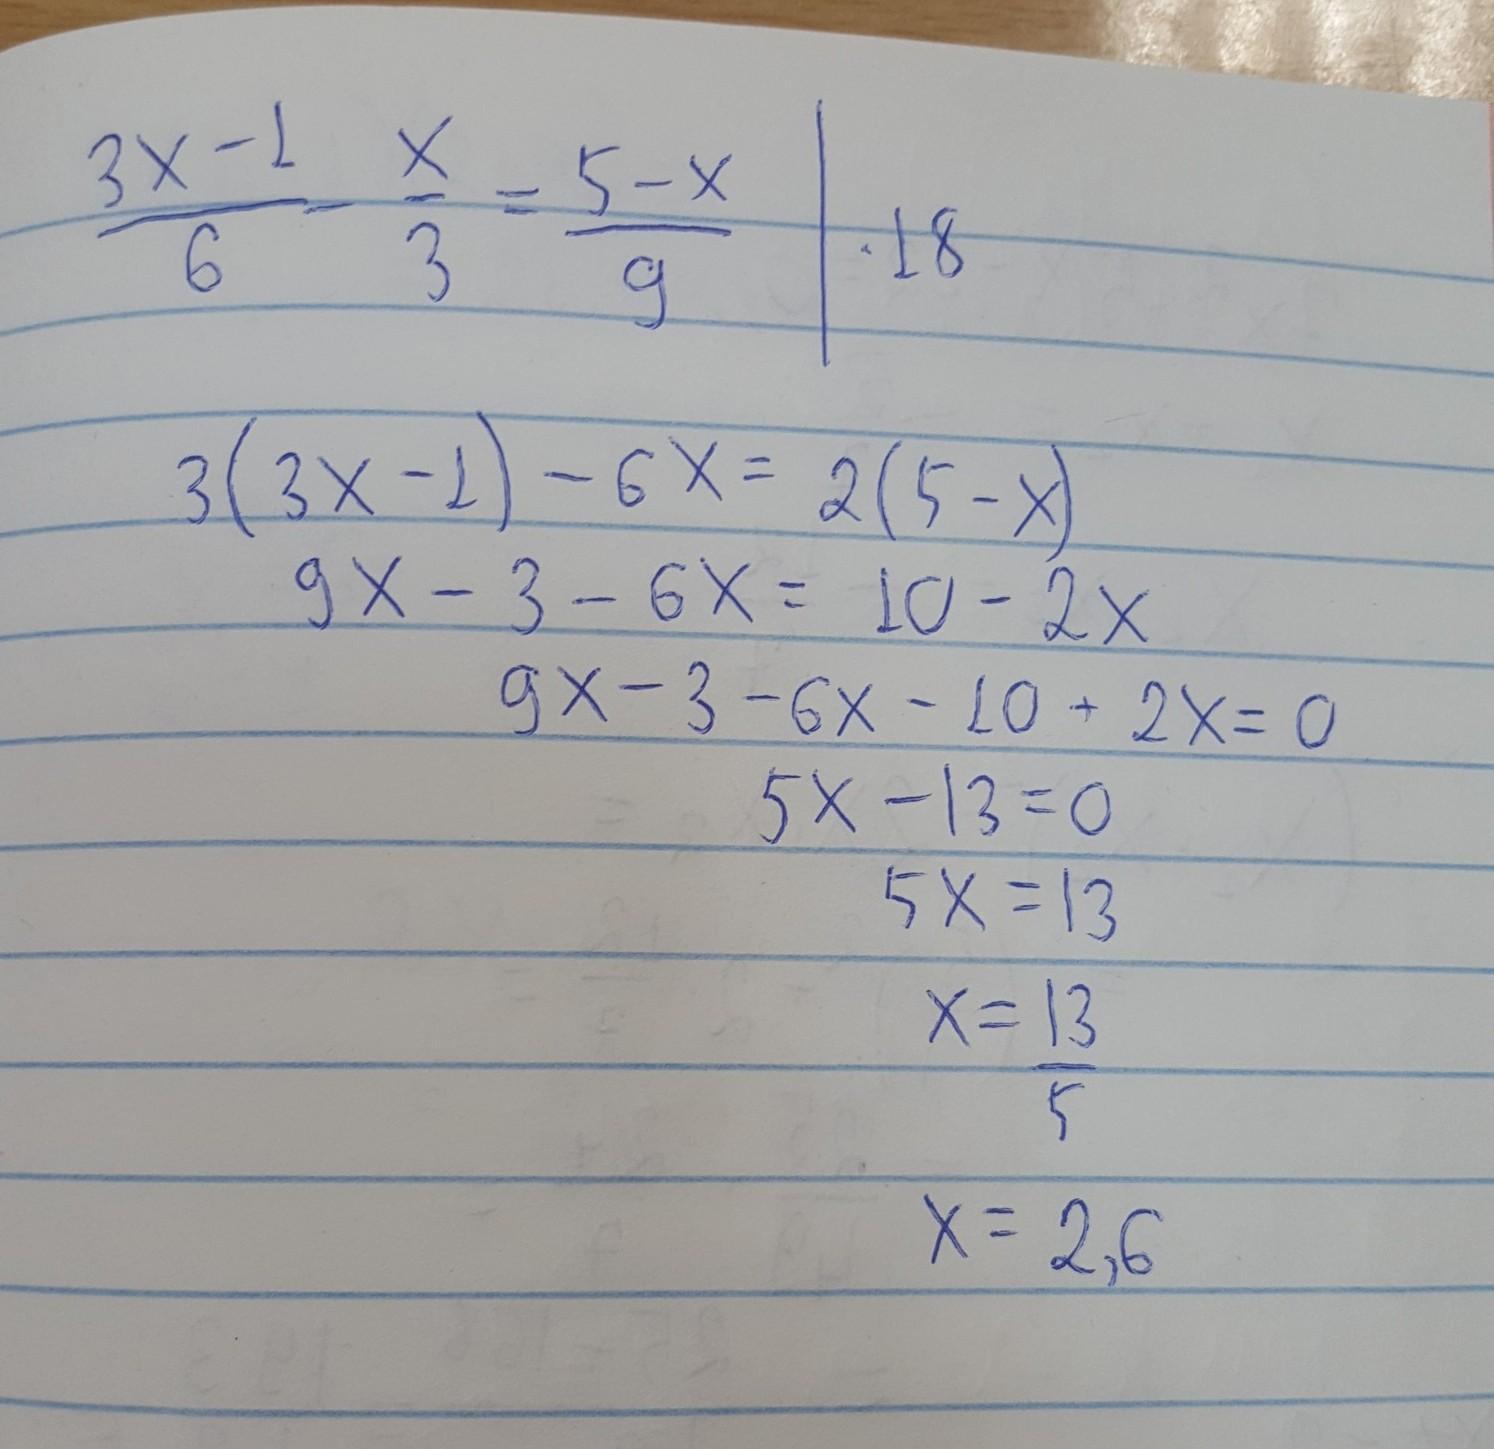 (3x-1)/6 - x/3 = (5-x)/9 | ·18
3(3x-1)-6x=2(5-x)
9x-3-6x=10-2x
9x-3-6x-10+2x=0
5x-13=0
5x=13
x=13/5
x=2,6